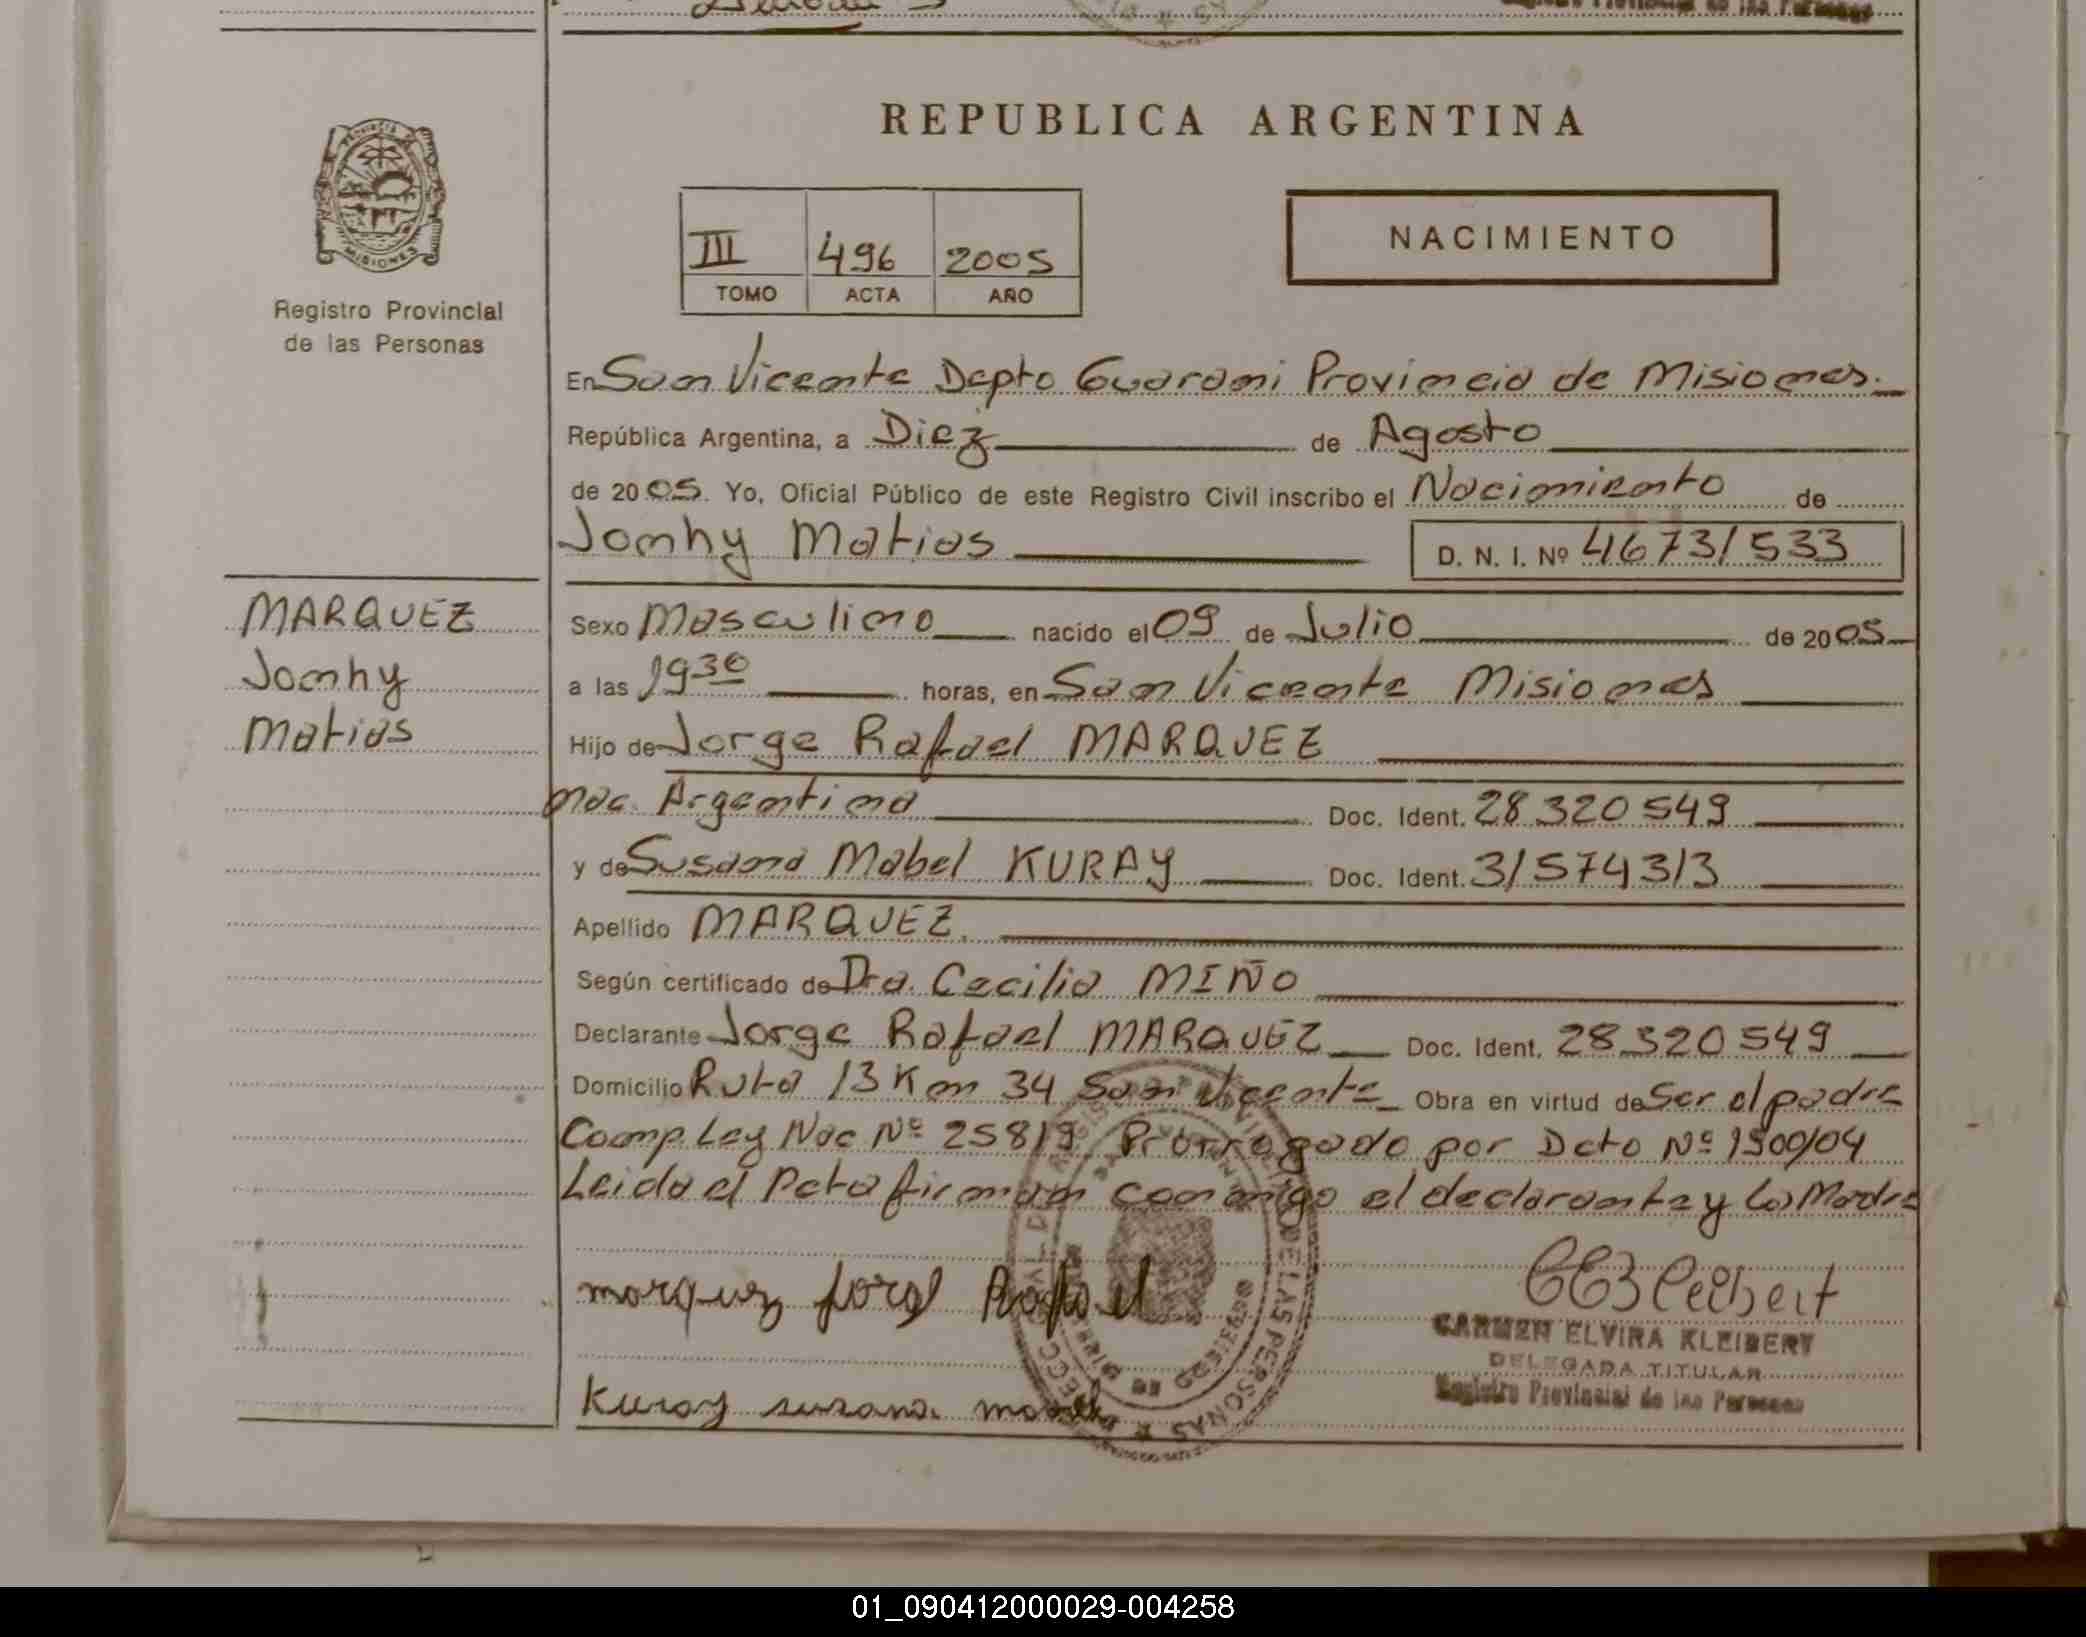 REPUBLICA ARGENTINA
MISIONES
Registro Provincial
de las Personas
III 496 2005
TOMO ACTA AÑO
NACIMIENTO
En San Vicente Depto Guarani Provincia de Misiones.
República Argentina, a Diez de Agosto
de 2005. Yo, Oficial Público de este Registro Civil inscribo el Nacimiento de
Jonhy Matias D. N. I. Nº 46731533
MARQUEZ
Jonhy
Matias
Sexo Masculino nacido el 09 de Julio de 2005
a las 19 30 horas, en San Vicente Misiones
Hijo de Jorge Rafael MARQUEZ
Nac. Argentina Doc. Ident. 28320549
y de Susana Mabel KURAY Doc. Ident. 31574313
Apellido MARQUEZ.
Según certificado de Dra. Cecilia MIÑO
Declarante Jorge Rafael MARQUEZ Doc. Ident. 28320549
Domicilio Ruta 13 Km 34 San Vicente Obra en virtud de Ser el padre
Comp. Ley Nac Nº 25819 Prorrogado por Dcto Nº 1500/04
Leida el Acta firman conmigo el declarante y la Madre
marquez jorge Rafael
CARMEN ELVIRA KLEIBERT
DELEGADA TITULAR
Registro Provincial de las Personas
Kuray susana
01_090412000029-004258